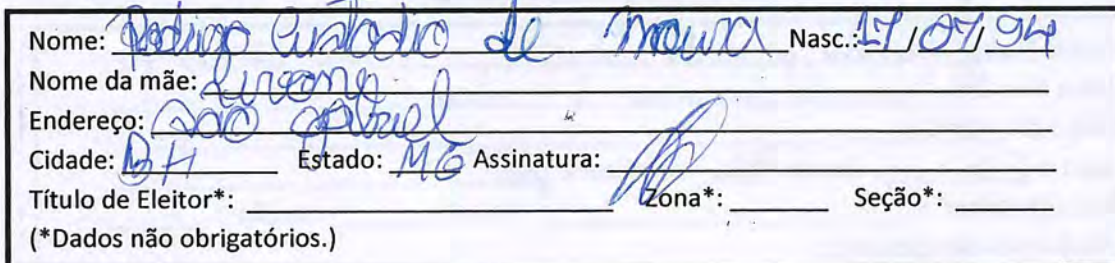 Nome: Rodrigo Custodio de Moura Nasc.: 17/07/94
Nome da mãe:
Endereço: São Gabriel
Cidade: BH Estado: MG Assinatura:
Título de Eleitor*: Zona*: Seção*:
(*Dados não obrigatórios.)